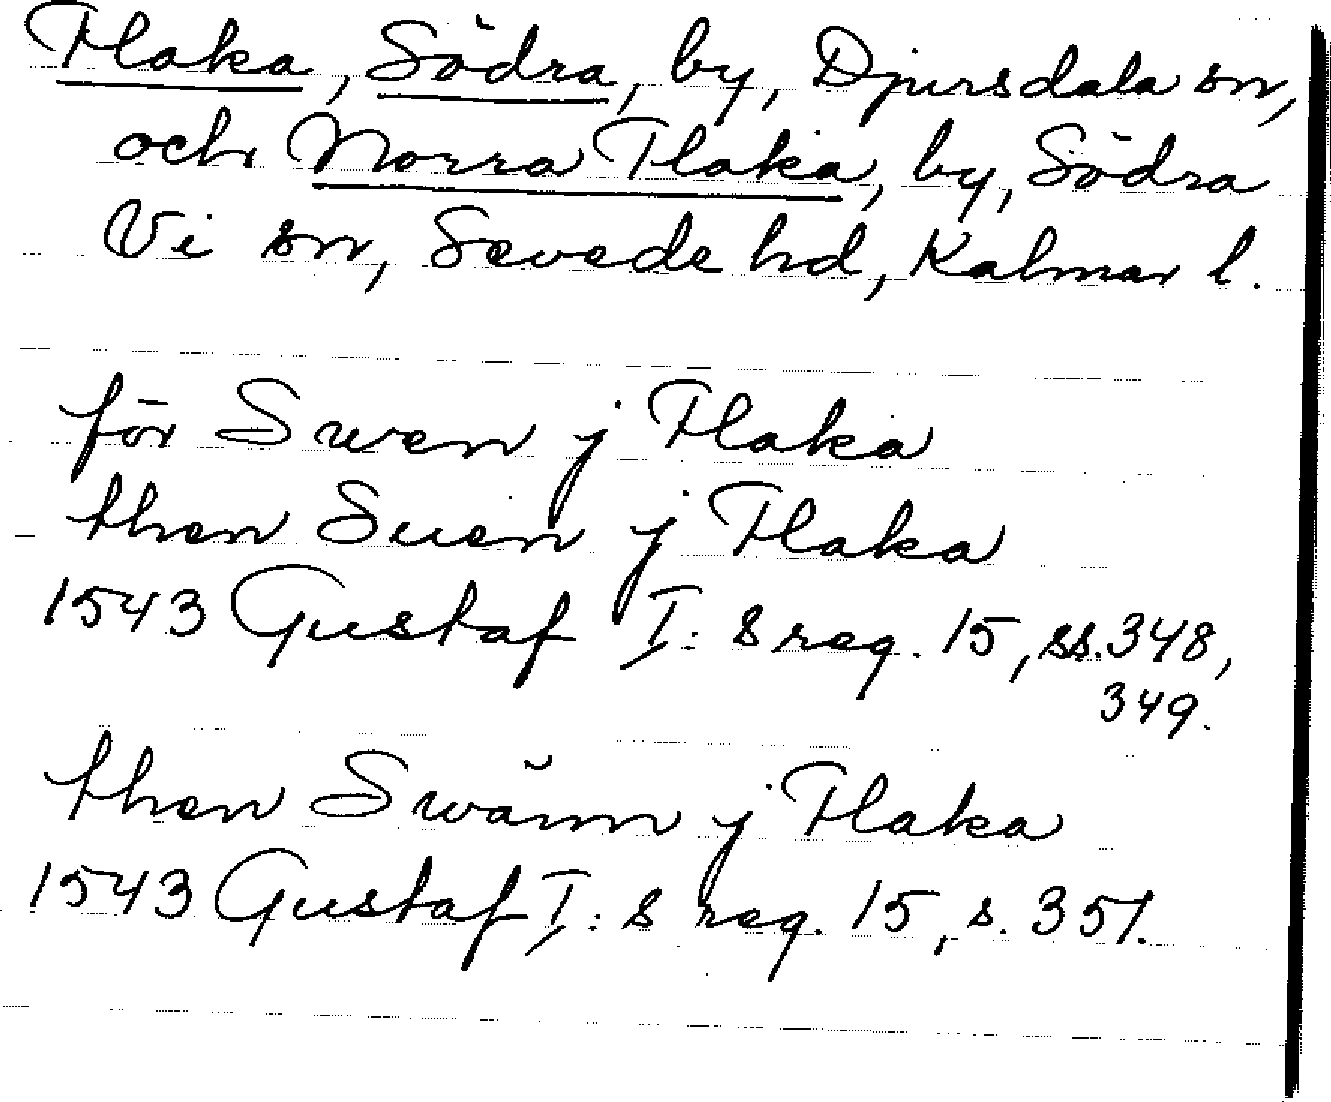 Flaka, Södra, by, Djursdala sn,
och Norra Flaka, by, Södra
Vi sn, Sevede hd, Kalmar l.
för Swen j Flaka
then Suen j Flaka
1543 Gustaf I:s reg. 15, ss. 348,
349.
then Swänn j Flaka
1543 Gustaf I:s reg. 15, s. 351.